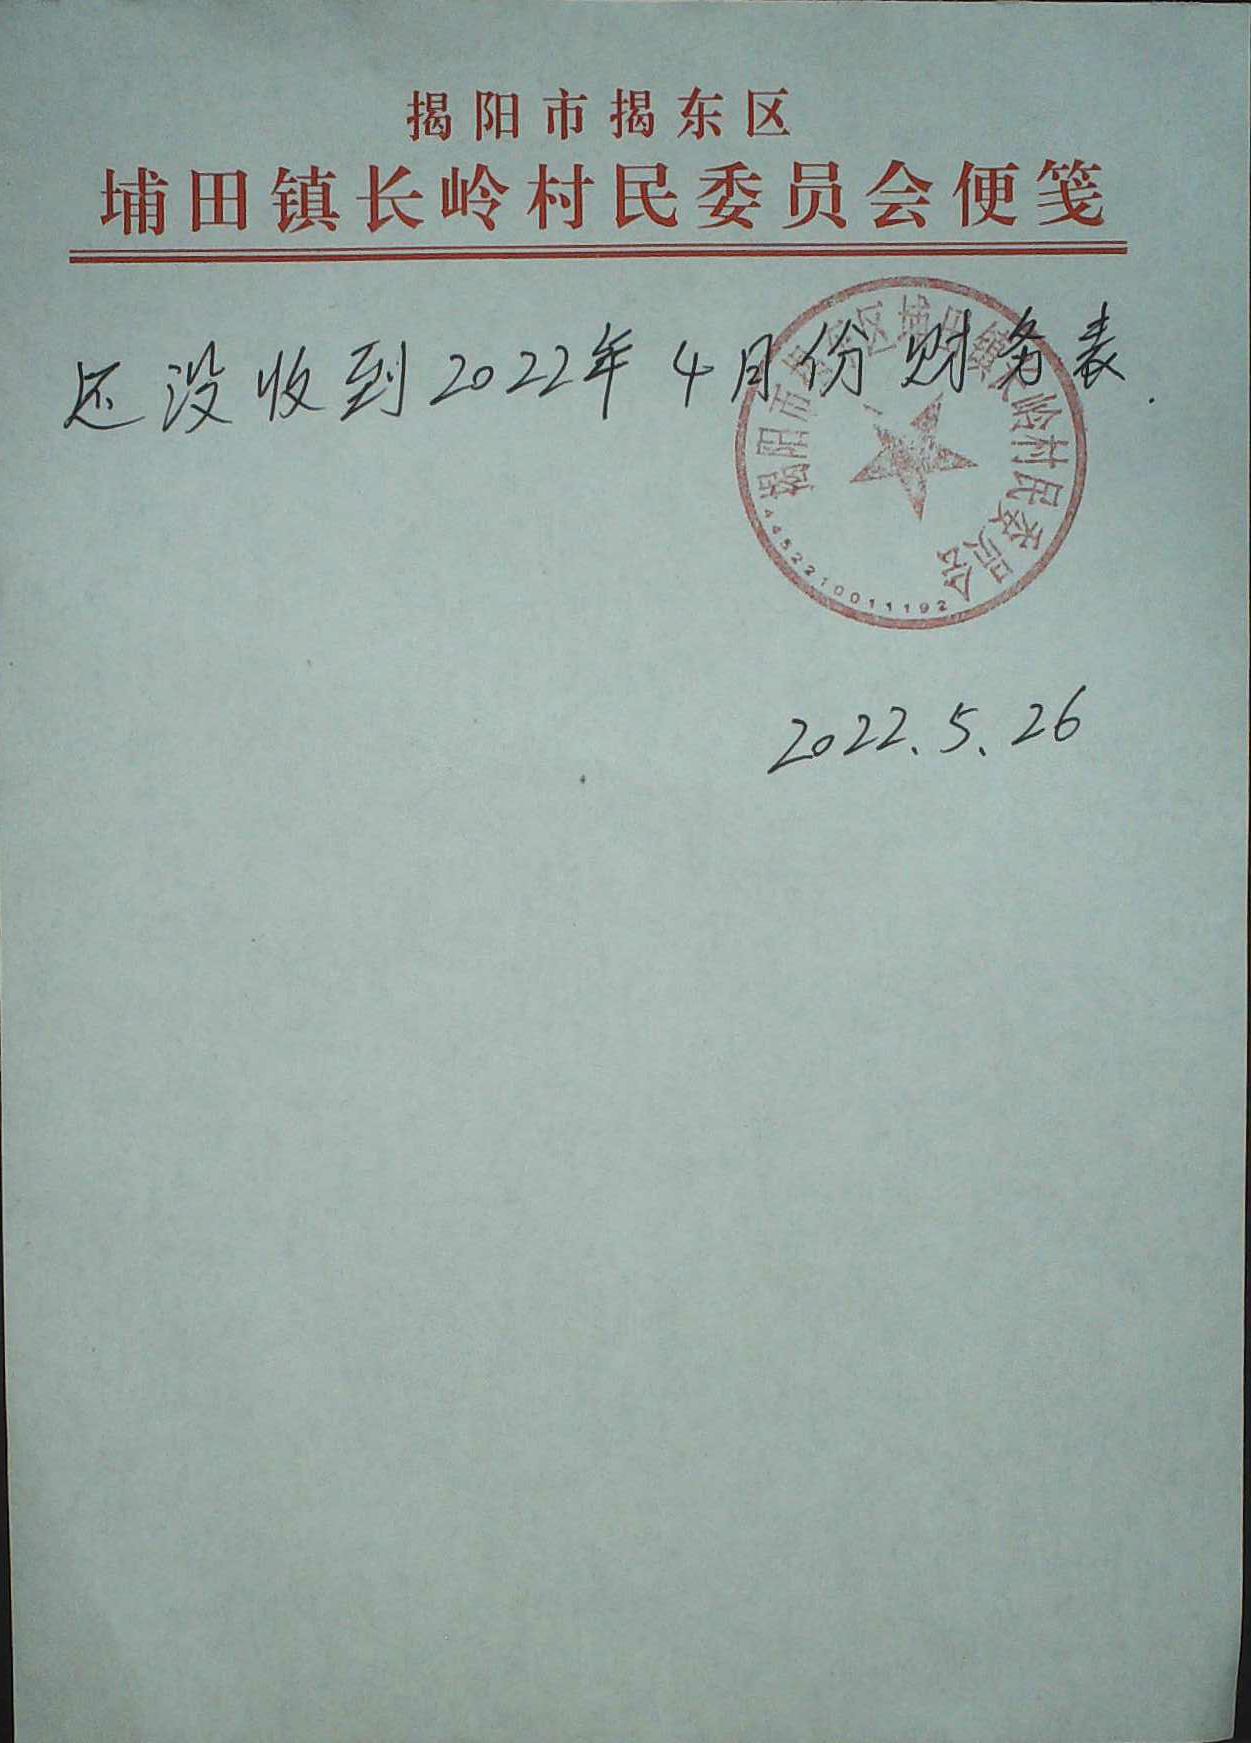 揭阳市揭东区
埔田镇长岭村民委员会便笺
还没收到2022年4月份财务表.
揭阳市揭东区埔田镇长岭村民委员会
4452210011192
2022.5.26